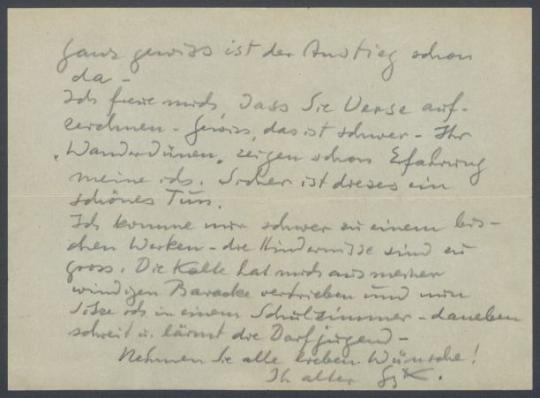 Ganz gewiss ist der Anstieg schon
da –
Ich freue mich, dass Sie Verse auf-
zeichnen – Gewiss, das ist schwer – Ihr
„Wanderdünen" zeigen schon Erfahrung
meine ich. Sicher ist dieses ein
schönes Tun.
Ich komme nur schwer zu einem bis-
chen Werken – die Hindernisse sind zu
gross. Die Kälte hat mich aus meiner
windigen Baracke vertrieben und nun
sitze ich in einem Schulzimmer – daneben
schreit u. lärmt die Dorfjugend –
Nehmen Sie alle lieben Wünsche!
Ihr alter